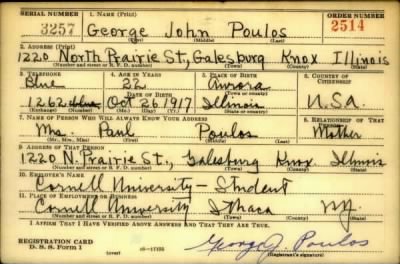 SERIAL NUMBER 1. NAME (Print) ORDER NUMBER
3257 George John Poulos 2514
(First) (Middle) (Last)
2. ADDRESS (Print)
1220 North Prairie St., Galesburg Knox Illinois
(Number and street or R. F. D. number) (Town) (County) (State)
3. TELEPHONE 4. AGE IN YEARS 5. PLACE OF BIRTH 6. COUNTRY OF CITIZENSHIP
Blue 22 Aurora
(Town or county)
1262 blue Oct 26 1917 Illinois U.S.A.
(Exchange) (Number) (Mo.) (Day) (Yr.) (State or country)
7. NAME OF PERSON WHO WILL ALWAYS KNOW YOUR ADDRESS 8. RELATIONSHIP OF THAT PERSON
Mrs. Paul Poulos Mother
(Mr., Mrs., Miss) (First) (Middle) (Last)
9. ADDRESS OF THAT PERSON
1220 N. Prairie St., Galesburg Knox Illinois
(Number and street or R. F. D. number) (Town) (County) (State)
10. EMPLOYER'S NAME
Cornell University - Student
11. PLACE OF EMPLOYMENT OR BUSINESS
Cornell University Ithaca N.Y.
(Number and street or R. F. D. number) (Town) (County) (State)
I AFFIRM THAT I HAVE VERIFIED ABOVE ANSWERS AND THAT THEY ARE TRUE.
REGISTRATION CARD
D. S. S. Form 1 (over) 16-17105 George J. Poulos
(Registrant's signature)